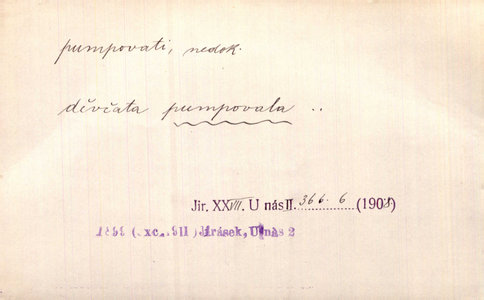 pumpovati, nedok.
děvčata pumpovala ..
Jir. XXVII. U nás II. 366. 6 (1903)
1899 (exc. 1911) Jirásek, U nás 2